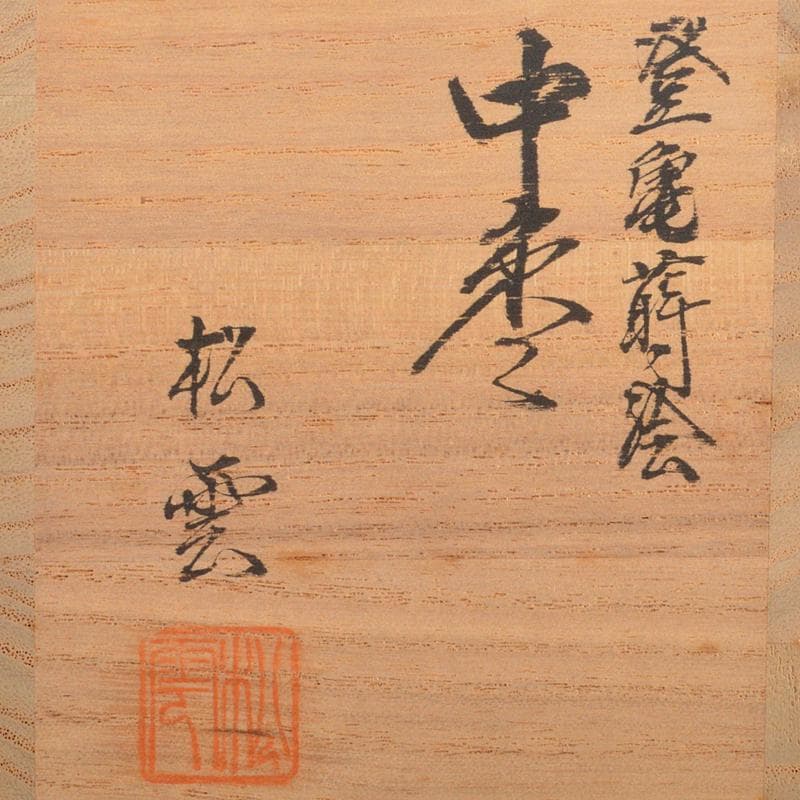 登亀蒔絵
中棗
松雲
松雲